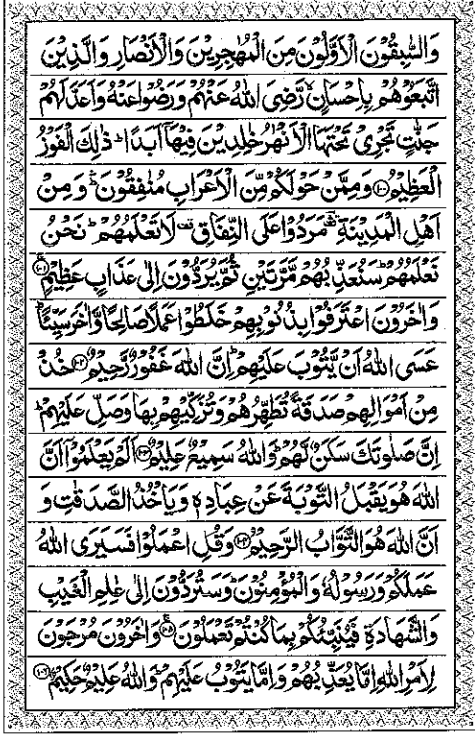 وَالسّٰبِقُوْنَ الْاَوَّلُوْنَ مِنَ الْمُهٰجِرِيْنَ وَالْاَنْصَارِ وَالَّذِيْنَ
اتَّبَعُوْهُمْ بِاِحْسَانٍ رَّضِيَ اللّٰهُ عَنْهُمْ وَرَضُوْا عَنْهُ وَاَعَدَّ لَهُمْ
جَنّٰتٍ تَجْرِيْ تَحْتَهَا الْاَنْهٰرُ خٰلِدِيْنَ فِيْهَآ اَبَدًا ؕ ذٰلِكَ الْفَوْزُ
الْعَظِيْمُ ﴿۱۰۰﴾ وَمِمَّنْ حَوْلَكُمْ مِّنَ الْاَعْرَابِ مُنٰفِقُوْنَ ۛؕ وَمِنْ
اَهْلِ الْمَدِيْنَةِ ۛؔ مَرَدُوْا عَلَى النِّفَاقِ ۟ لَا تَعْلَمُهُمْ ؕ نَحْنُ
نَعْلَمُهُمْ ؕ سَنُعَذِّبُهُمْ مَّرَّتَيْنِ ثُمَّ يُرَدُّوْنَ اِلٰى عَذَابٍ عَظِيْمٍ ﴿۱۰۱﴾
وَاٰخَرُوْنَ اعْتَرَفُوْا بِذُنُوْبِهِمْ خَلَطُوْا عَمَلًا صَالِحًا وَّاٰخَرَ سَيِّئًا ؕ
عَسَى اللّٰهُ اَنْ يَّتُوْبَ عَلَيْهِمْ ؕ اِنَّ اللّٰهَ غَفُوْرٌ رَّحِيْمٌ ﴿۱۰۲﴾ خُذْ
مِنْ اَمْوَالِهِمْ صَدَقَةً تُطَهِّرُهُمْ وَتُزَكِّيْهِمْ بِهَا وَصَلِّ عَلَيْهِمْ ؕ
اِنَّ صَلٰوتَكَ سَكَنٌ لَّهُمْ ؕ وَاللّٰهُ سَمِيْعٌ عَلِيْمٌ ﴿۱۰۳﴾ اَلَمْ يَعْلَمُوْٓا اَنَّ
اللّٰهَ هُوَ يَقْبَلُ التَّوْبَةَ عَنْ عِبَادِهٖ وَيَاْخُذُ الصَّدَقٰتِ وَ
اَنَّ اللّٰهَ هُوَ التَّوَّابُ الرَّحِيْمُ ﴿۱۰۴﴾ وَقُلِ اعْمَلُوْا فَسَيَرَى اللّٰهُ
عَمَلَكُمْ وَرَسُوْلُهٗ وَالْمُؤْمِنُوْنَ ؕ وَسَتُرَدُّوْنَ اِلٰى عٰلِمِ الْغَيْبِ
وَالشَّهَادَةِ فَيُنَبِّئُكُمْ بِمَا كُنْتُمْ تَعْمَلُوْنَ ﴿۱۰۵﴾ وَاٰخَرُوْنَ مُرْجَوْنَ
لِاَمْرِ اللّٰهِ اِمَّا يُعَذِّبُهُمْ وَاِمَّا يَتُوْبُ عَلَيْهِمْ ؕ وَاللّٰهُ عَلِيْمٌ حَكِيْمٌ ﴿۱۰۶﴾